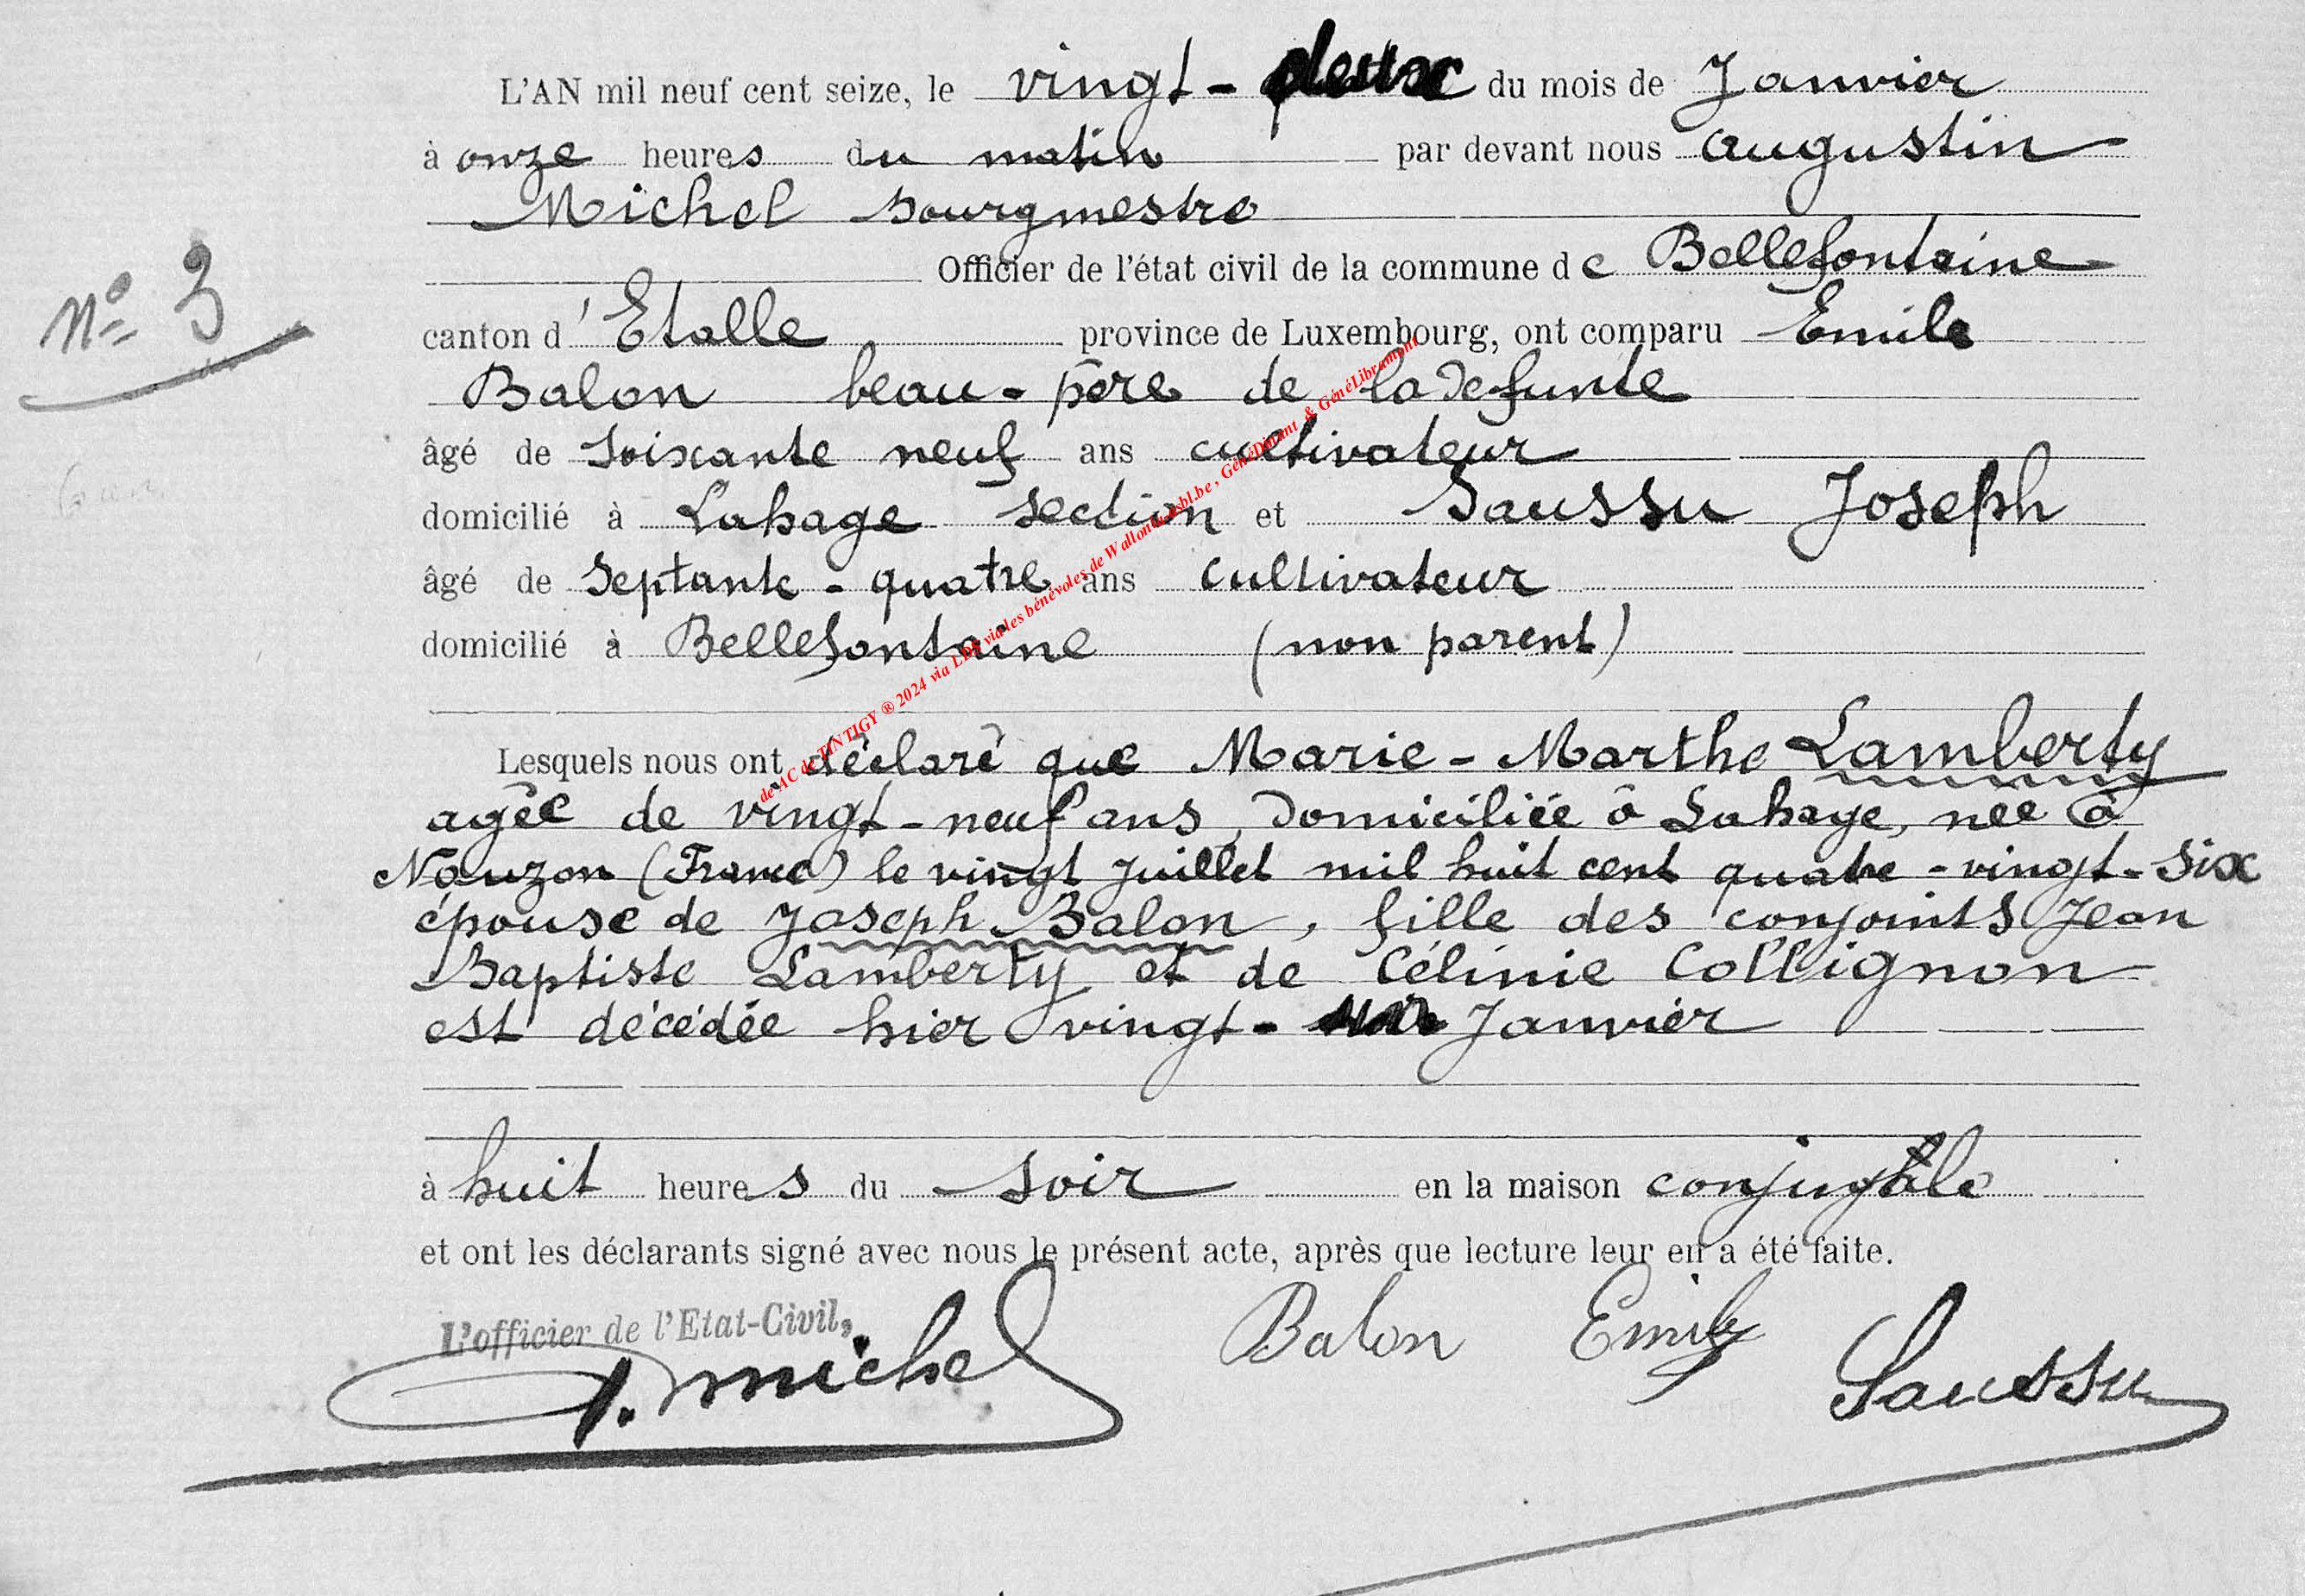 L'AN mil neuf cent seize, le vingt-deux du mois de Janvier
à onze heures du matin par devant nous Augustin
Michel Bourgmestre
Officier de l'état civil de la commune de Bellefontaine
nº 3
canton d'Etalle province de Luxembourg, ont comparu Emile
Balon beau-père de la défunte
âgé de soixante neuf ans cultivateur
domicilié à Lahage section et Saussu Joseph
âgé de septante-quatre ans cultivateur
domicilié à Bellefontaine (non parent)
Lesquels nous ont déclaré que Marie-Marthe Lamberty
agée de vingt-neuf ans, domiciliée à Lahage, née à
Nouzon (France) le vingt Juillet mil huit cent quatre-vingt-six
épouse de Joseph Balon, fille des conjoints Jean
Baptiste Lamberty et de Célinie Collignon
est décédée hier vingt-un Janvier
à huit heures du soir en la maison conjugale
et ont les déclarants signé avec nous le présent acte, après que lecture leur en a été faite.
L'officier de l'Etat-Civil,
A. Michel Balon Emile Saussu
de AC de TINTIGY ® 2024 via LDS via les bénévoles de Wallonia asbl.be, GénéDinant & GénéLibramont